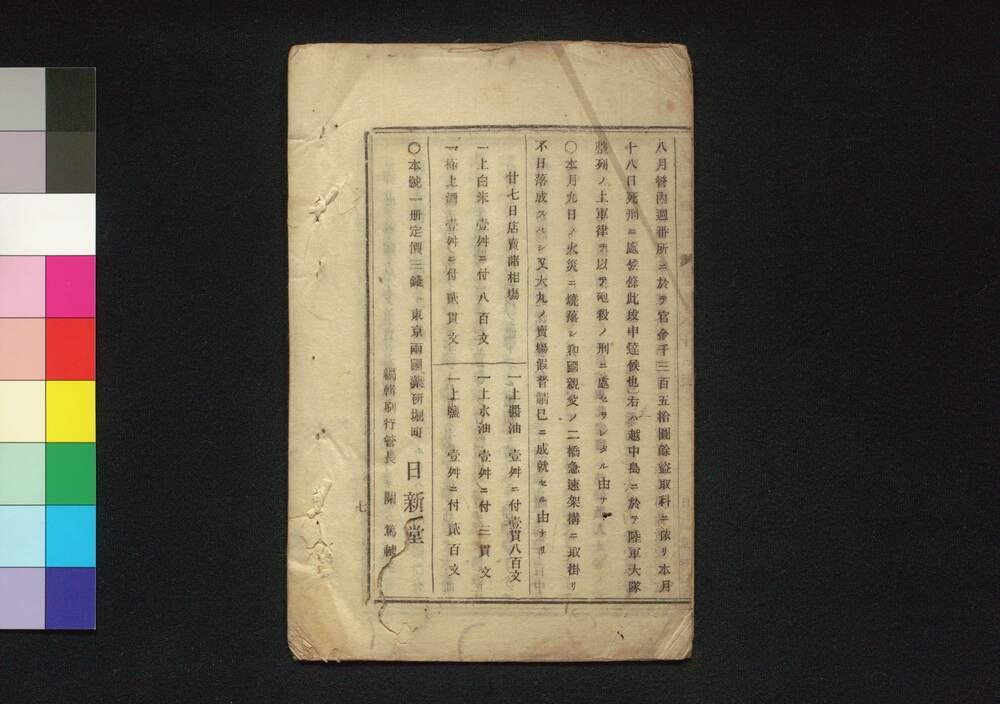 八月營內週番所ニ於テ官金千三百五拾圓餘盜取科ニ依リ本月
十八日死刑ニ處候條此段申達候也右ハ越中島ニ於テ陸軍大隊
整列ノ上軍律ヲ以テ砲殺ノ刑ニ處セラレタル由ナリ
〇本月九日ノ火災ニ燒落シ和國親父ノ二橋急速架構ニ取掛リ
不日落成スベシ又大丸ノ賣場假普請已ニ成就セル由ナリ
廿七日店賣諸相塲
一上醬油 壹舛ニ付壹貫八百文
一上白米 壹舛ニ付八百文
一上水油 壹舛ニ付三貫文
一極上酒 壹舛ニ付貳貫文
一上鹽 壹舛ニ付貳百文
〇本號一册定價三錢 東京兩國藥研堀町 日新堂
編輯刷行管長 關 篤
七